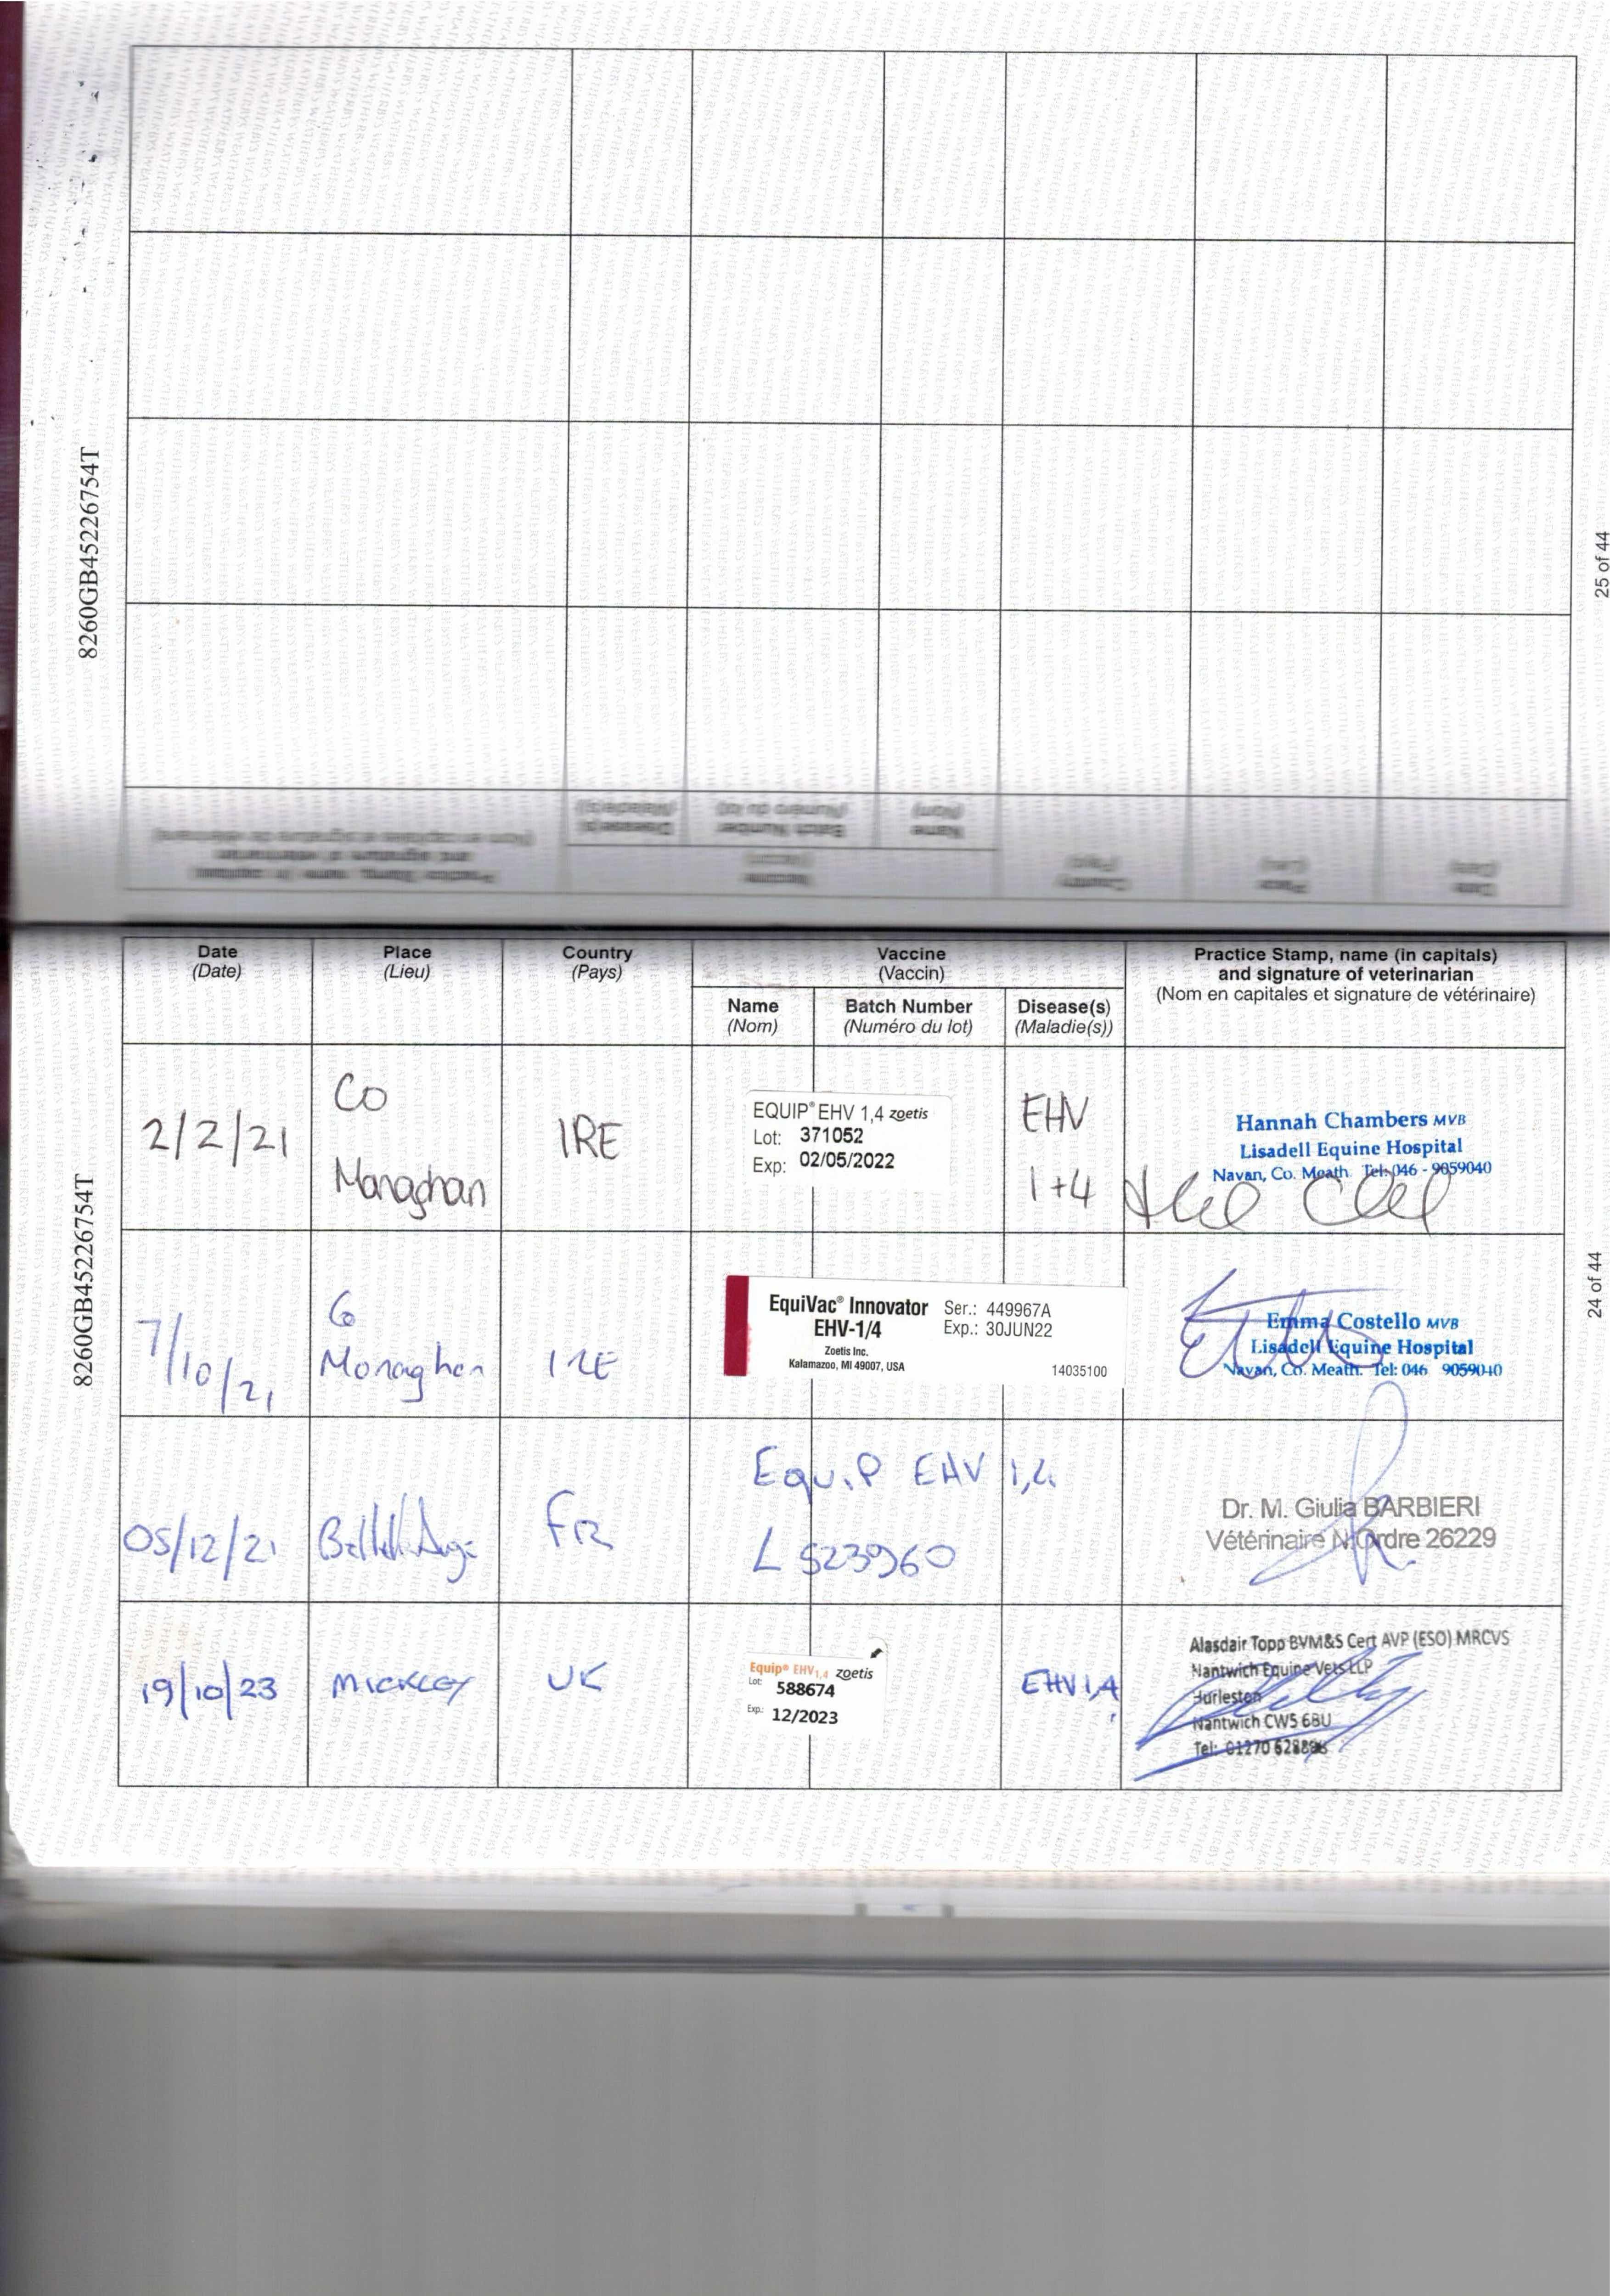 8260GB45226754T
25 of 44
Practice Stamp, name (in capitals)
and signature of veterinarian
(Nom en capitales et signature de vétérinaire)
Vaccine
(Vaccin)
Disease(s)
(Maladie(s))
Batch Number
(Numéro du lot)
Name
(Nom)
Country
(Pays)
Place
(Lieu)
Date
(Date)
8260GB45226754T
24 of 44
Date
(Date)
Place
(Lieu)
Country
(Pays)
Vaccine
(Vaccin)
Name
(Nom)
Batch Number
(Numéro du lot)
Disease(s)
(Maladie(s))
Practice Stamp, name (in capitals)
and signature of veterinarian
(Nom en capitales et signature de vétérinaire)
2/2/21
Co
Monaghan
IRE
EQUIP® EHV 1,4 zoetis
Lot: 371052
Exp: 02/05/2022
EHV
1+4
Hannah Chambers MVB
Lisadell Equine Hospital
Navan, Co. Meath. Tel: 046 - 9059040
7/10/21
Co
Monaghan
IRE
EquiVac® Innovator
EHV-1/4
Zoetis Inc.
Kalamazoo, MI 49007, USA
Ser.: 449967A
Exp.: 30JUN22
14035100
Emma Costello MVB
Lisadell Equine Hospital
Navan, Co. Meath. Tel: 046 9059040
05/12/21
FR
Equip EHV 1,4
L 523960
Dr. M. Giulia BARBIERI
Vétérinaire N.Ordre 26229
19/10/23
MICKLEY
UK
Equip® EHV1,4 zoetis
Lot: 588674
Exp.: 12/2023
EHV 1,4
Alasdair Topp BVM&S Cert AVP (ESO) MRCVS
Nantwich Equine Vets LLP
Hurleston
Nantwich CW5 6BU
Tel: 01270